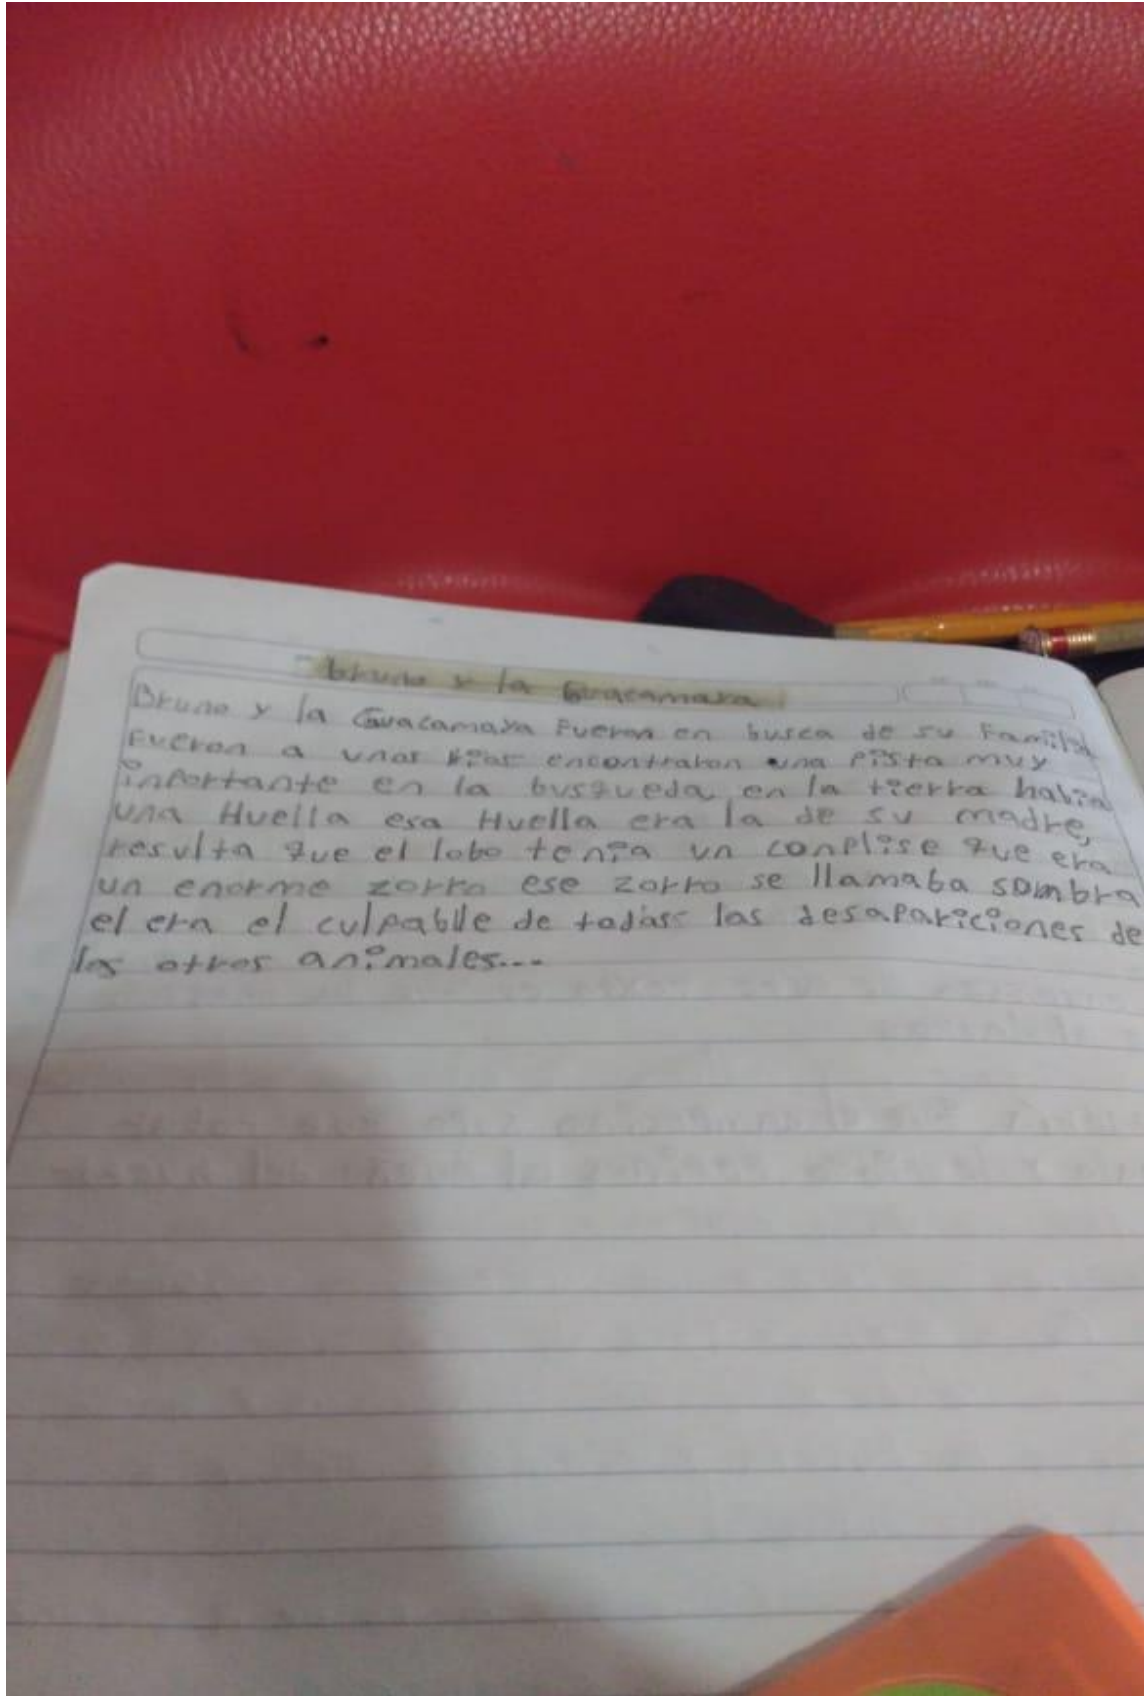 bruno y la Guacamaya
Bruno y la Guacamaya Fueron en busca de su Familia
Fueron a unas encontraron una Pista muy
inPortante en la busqueda, en la tierra habia
una Huella esa Huella era la de su madre,
resulta que el lobo tenia un conplise que era
un enorme zorro ese zorro se llamaba sombra
el era el culpable de todas las desapariciones de
los otros animales...